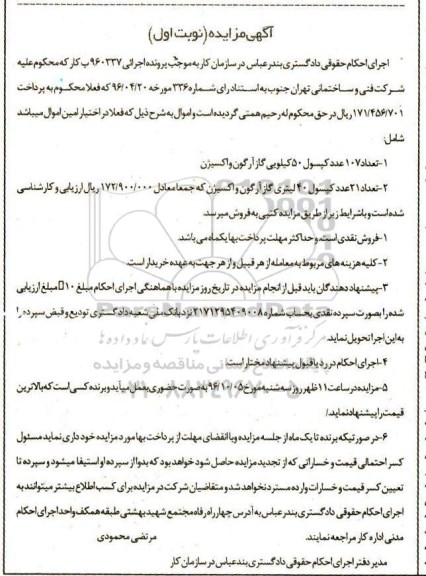 آگهی مزایده (نوبت اول)
اجرای احکام حقوقی دادگستری بندرعباس در سازمان کار به موجب پرونده اجرائی ۹۶۰۳۳۷ ب کار که محکوم علیه
شرکت فنی و ساختمانی تهران جنوب به استناد رای شماره ۳۳۶ مورخه ۹۶/۰۴/۲۰ که فعلا محکوم به پرداخت
۱۷۱/۴۵۶/۷۰۱ ریال در حق محکوم له رحیم همتی گردیده است و اموال به شرح ذیل که فعلا در اختیار امین اموال میباشد
شامل:
۱-تعداد ۱۰۷ عدد کپسول ۵۰ کیلویی گاز آرگون واکسیژن
۲-تعداد ۲۱ عدد کپسول ۴۰ لیتری گاز آرگون واکسیژن که جمعا معادل ۱۷۲/۹۰۰/۰۰۰ ریال ارزیابی و کارشناسی
شده است و با شرایط زیر از طریق مزایده کتبی به فروش میرسد.
۱-فروش نقدی است و حداکثر مهلت پرداخت بها یکماه می باشد.
۲-کلیه هزینه های مربوط به معامله از هر قبیل و از هر جهت به عهده خریدار است.
۳-پیشنهاد دهندگان باید قبل از انجام مزایده در تاریخ روز مزایده با هماهنگی اجرای احکام مبلغ ۱۰٪ مبلغ ارزیابی
شده را بصورت سپرده نقدی بحساب شماره ۲۱۷۱۲۹۵۴۰۹۰۰۸ نزد بانک ملی شعبه دادگستری تودیع و قبض سپرده را
به این اجرا تحویل نماید.
۴-اجرای احکام در رد یا قبول پیشنهاد مختار است
۵-مزایده در ساعت ۱۱ ظهر روز سه شنبه مورخ ۹۶/۱۰/۰۵ به صورت حضوری بعمل میآید و برنده کسی است که بالاترین
قیمت را پیشنهاد نماید.
۶-در صورتیکه برنده تا یک ماه از جلسه مزایده و با انقضای مهلت از پرداخت بها مورد مزایده خودداری نماید مسئول
کسر احتمالی قیمت و خساراتی که از تجدید مزایده حاصل شود خواهد بود که بدوا از سپرده او استیفا میشود و سپرده تا
تعیین کسر قیمت و خسارات وارده مسترد نخواهد شد و متقاضیان شرکت در مزایده برای کسب اطلاع بیشتر میتوانند به
اجرای احکام حقوقی دادگستری بندرعباس به آدرس چهارراه رفاه مجتمع شهید بهشتی طبقه همکف واحد اجرای احکام
مدنی اداره کار مراجعه نمایند. مرتضی محمودی
مدیر دفتر اجرای احکام حقوقی دادگستری بندرعباس در سازمان کار